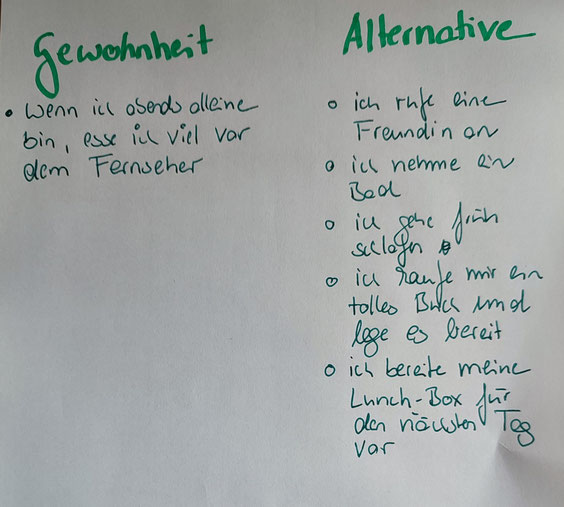 Gewohnheit
• wenn ich abends alleine
bin, esse ich viel vor
dem Fernseher
Alternative
○ ich rufe eine
Freundin an
○ ich nehme ein
Bad
○ ich gehe früh
schlafen
○ ich kaufe mir ein
tolles Buch und
lege es bereit
○ ich bereite meine
Lunch-Box für
den nächsten Tag
vor